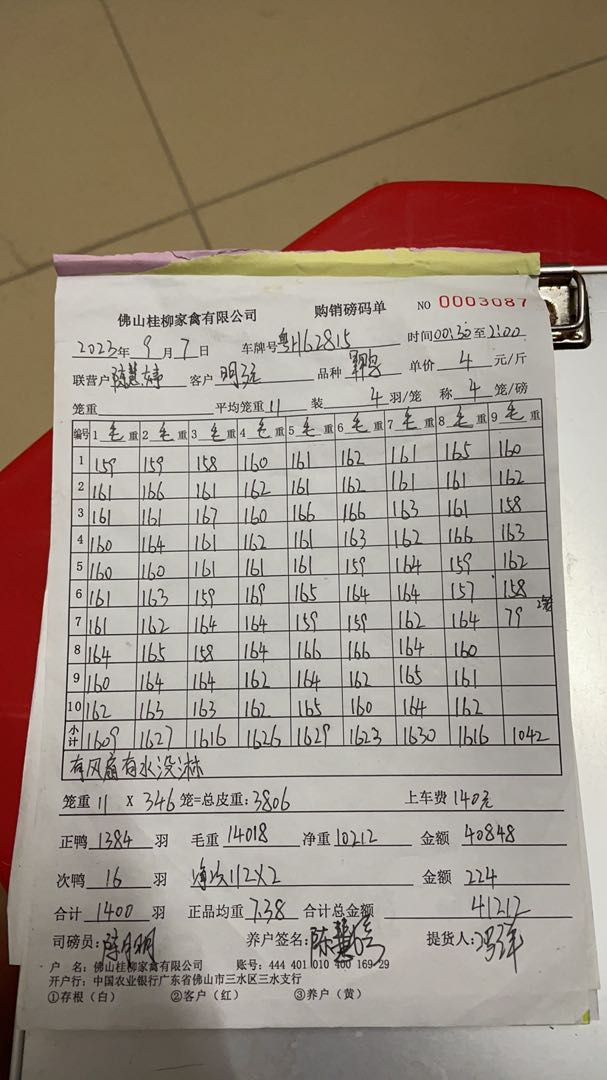 佛山桂柳家禽有限公司 购销磅码单 NO 0003087
2023年 9 月 7 日 车牌号 粤H62815 时间 00:30 至 2:00
联营户 陈慧婷 客户 明 品种 单价 4 元/斤
笼重 平均笼重 11 装 4 羽/笼 称 4 笼/磅
编号 1 毛重 2 毛重 3 毛重 4 毛重 5 毛重 6 毛重 7 毛重 8 毛重 9 毛重
1 159 159 158 160 161 162 161 165 160
2 161 166 161 162 161 162 161 161 161
3 161 161 167 160 166 166 163 161 158
4 160 164 161 162 161 163 162 166 163
5 160 160 161 161 161 159 164 159 162
6 161 163 159 169 165 164 164 157 158
7 161 162 164 164 159 159 162 164 79 2笼
8 164 165 158 164 166 166 164 160
9 160 164 164 162 164 162 165 161
10 162 163 163 162 165 160 164 162
小计 1609 1627 1616 1626 1629 1623 1630 1616 1042
有风扇有水没淋
笼重 11 X 346 笼=总皮重: 3806 上车费 140元
正鸭 1384 羽 毛重 14018 净重 10212 金额 40848
次鸭 16 羽 112X2 金额 224
合计 1400 羽 正品均重 7.38 合计总金额 41212
司磅员: 陈明 养户签名: 陈慧婷 提货人: 冯
户 名: 佛山桂柳家禽有限公司 账号: 444 401 010 400 169 29
开户行: 中国农业银行广东省佛山市三水区三水支行
①存根（白） ②客户（红） ③养户（黄）